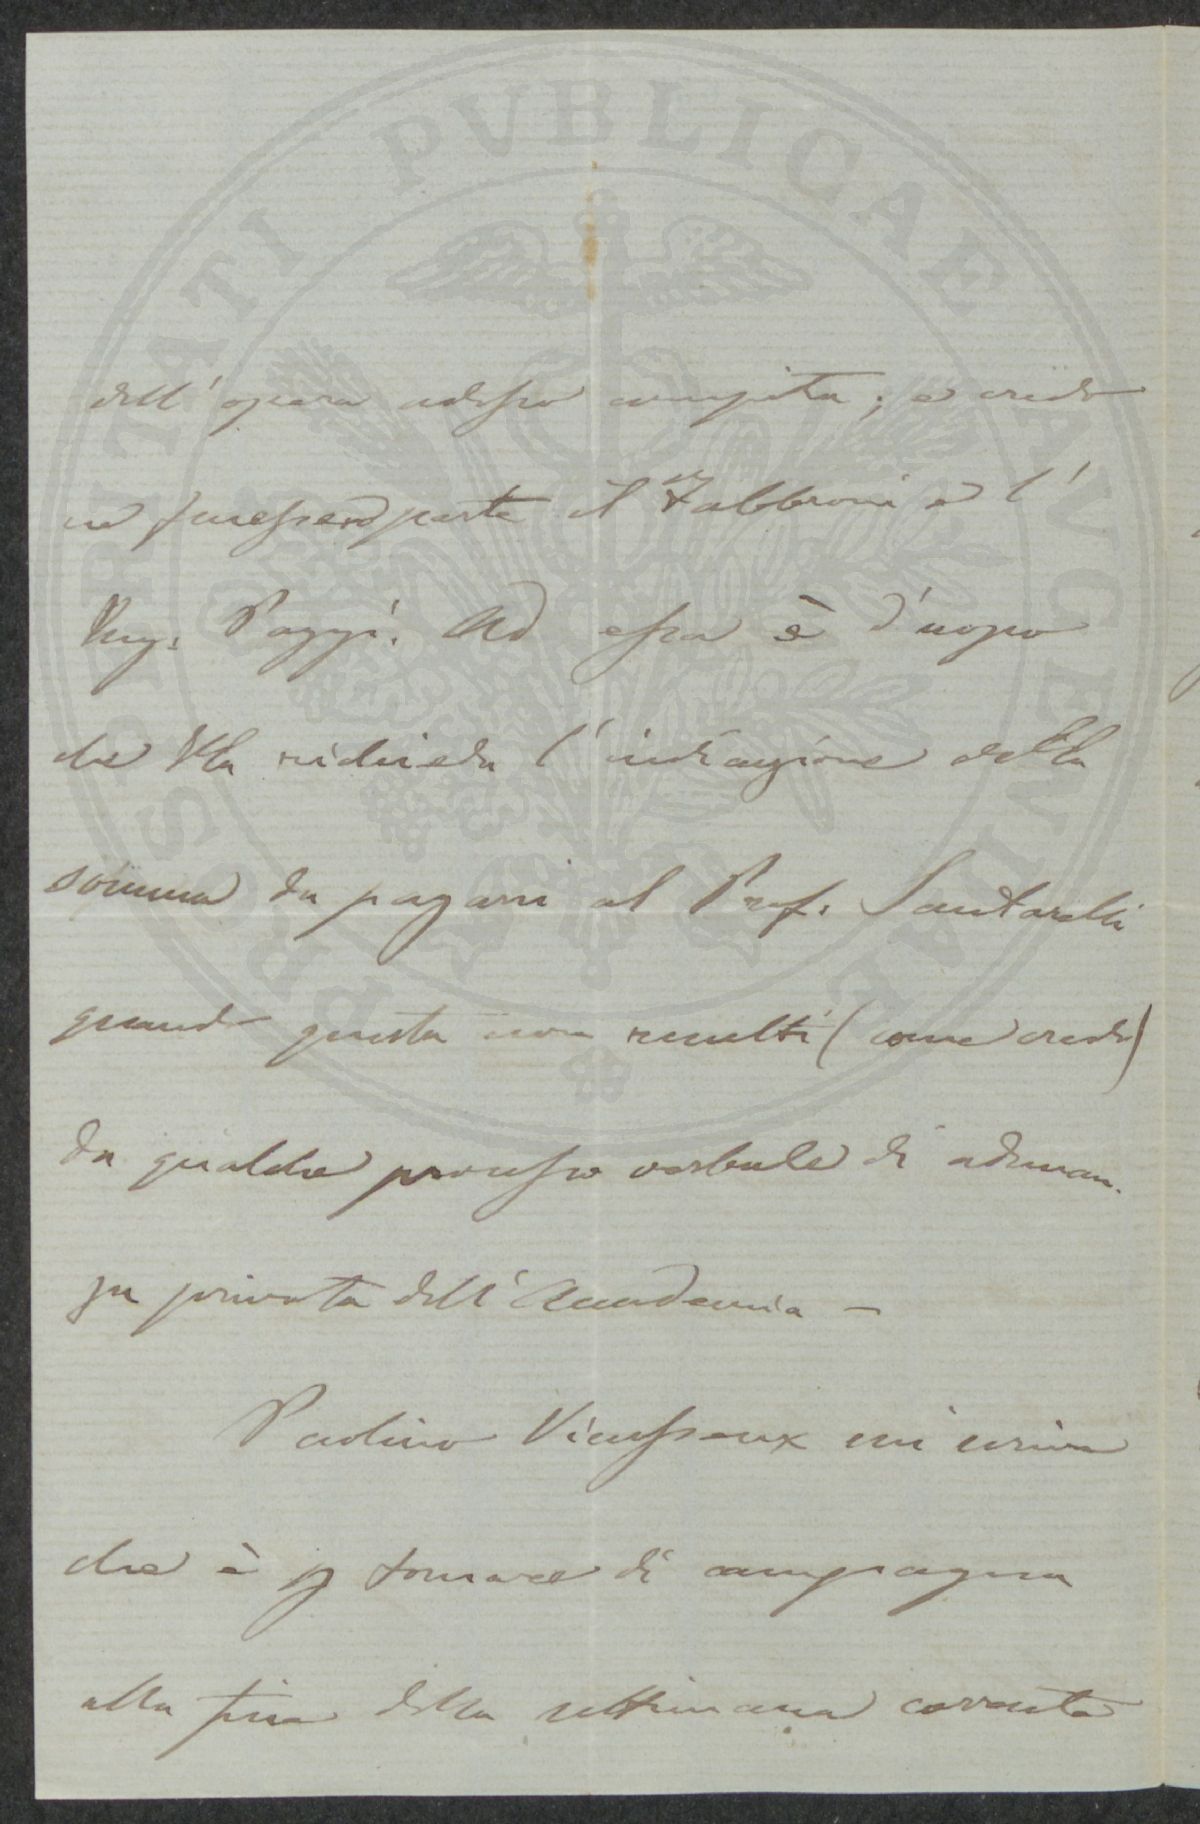 PROSPERITATI PUBLICAE AVGENDAE
dell'opera adesso compita; e credo
ne facessero parte il Fabbroni e l'
Ing. Poggi. Ad essa è d'uopo
che Ella richieda l'indicazione della
somma da pagarsi al Prof. Santarelli
quando questa non resulti (come credo)
da qualche processo verbale di adunan-
za privata dell'Accademia —
Paolino Vieusseux mi scrive
che è p tornare di campagna
alla fine della settimana corrente